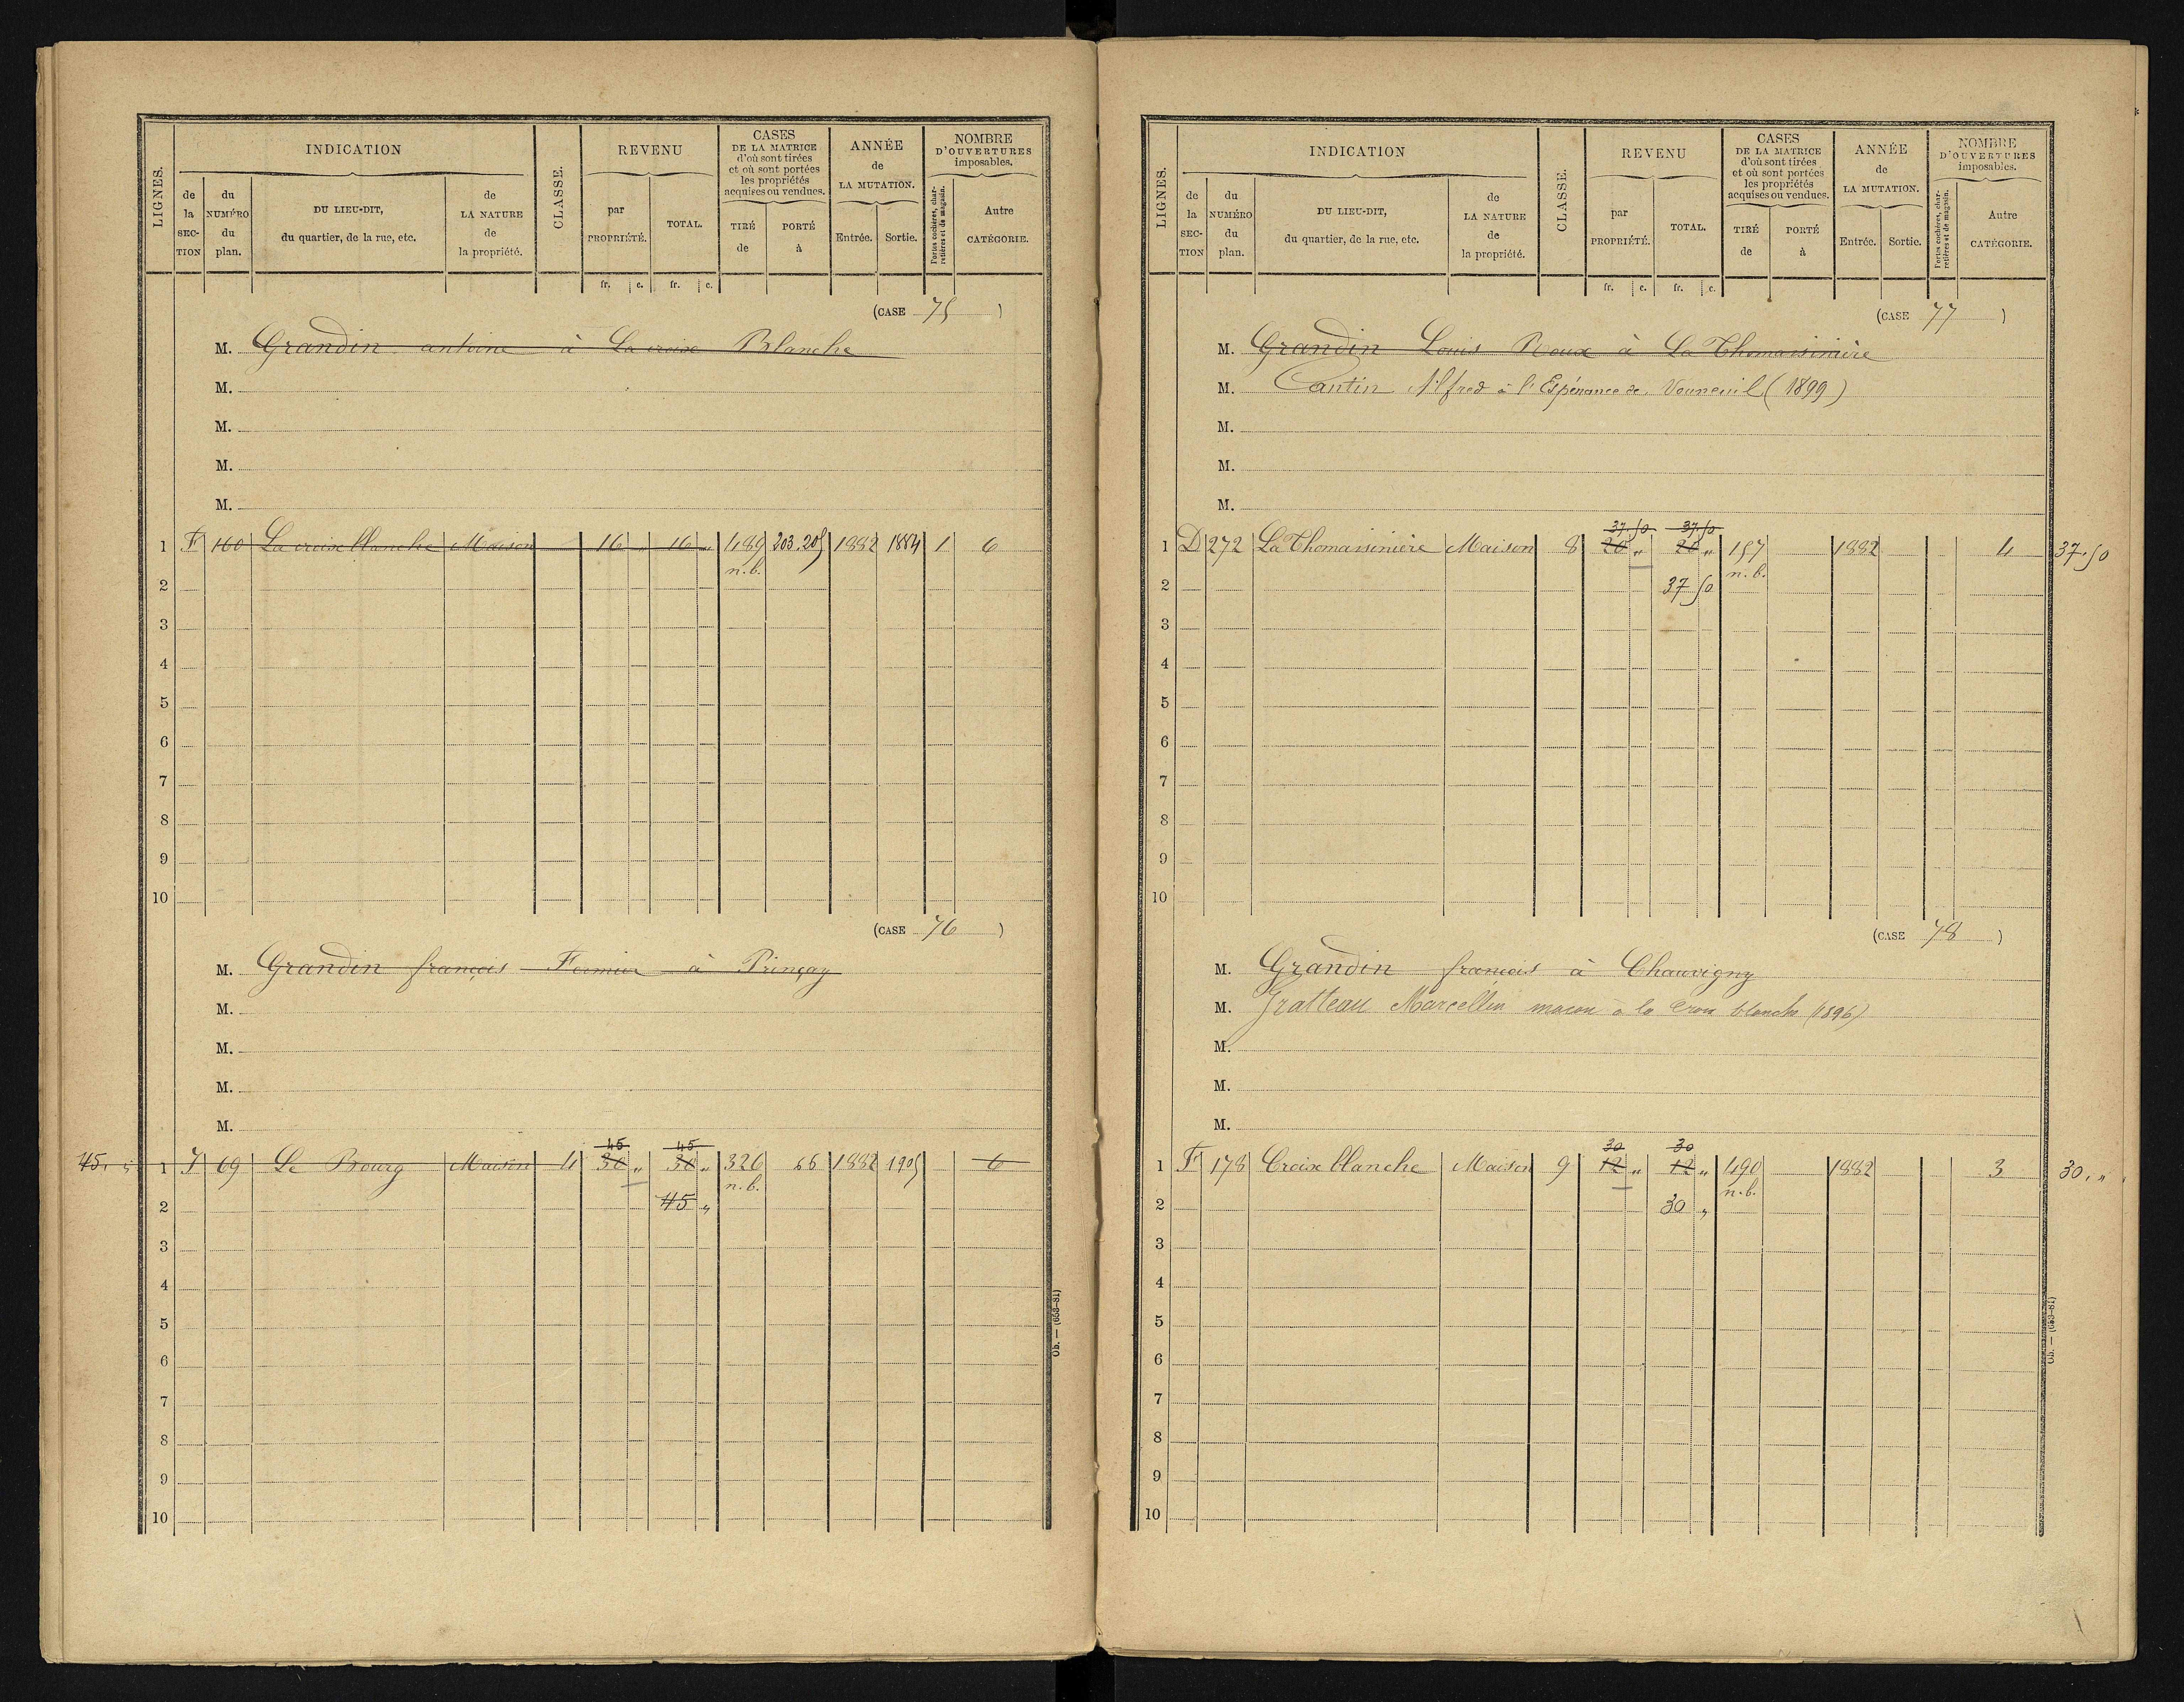 LIGNES.
INDICATION
de la SECTION
du NUMÉRO du plan.
DU LIEU-DIT, du quartier, de la rue, etc.
de LA NATURE de la propriété.
CLASSE.
REVENU
par PROPRIÉTÉ.
TOTAL.
fr. c. fr. c.
CASES DE LA MATRICE d'où sont tirées et où sont portées les propriétés acquises ou vendues.
TIRÉ de
PORTÉ à
ANNÉE de LA MUTATION.
Entrée. Sortie.
NOMBRE D'OUVERTURES imposables.
Portes cochères, charretières et de magasin.
Autre CATÉGORIE.
(CASE 75)
M. Grandin antoine à La croix Blanche
M.
M.
M.
M.
1 F 160 La croix blanche Maison 16 " 16 " 489 203.205 1882 1884 1 6
n.b.
2
3
4
5
6
7
8
9
10
(CASE 76)
M. Grandin françois Fermier à Prinçay
M.
M.
M.
M.
45 45
45. " 1 I 69 Le Bourg Maison 4 30 " 30 " 326 66 1882 1905 6
n.b.
2 45 "
3
4
5
6
7
8
9
10
Ob. — (653-81)
LIGNES.
INDICATION
de la SECTION
du NUMÉRO du plan.
DU LIEU-DIT, du quartier, de la rue, etc.
de LA NATURE de la propriété.
CLASSE.
REVENU
par PROPRIÉTÉ.
TOTAL.
fr. c. fr. c.
CASES DE LA MATRICE d'où sont tirées et où sont portées les propriétés acquises ou vendues.
TIRÉ de
PORTÉ à
ANNÉE de LA MUTATION.
Entrée. Sortie.
NOMBRE D'OUVERTURES imposables.
Portes cochères, charretières et de magasin.
Autre CATÉGORIE.
(CASE 77)
M. Grandin Louis Roux à La Thomassinière
M. Cantin Alfred à l'Espérance de Vouneuil (1899)
M.
M.
M.
37.50 37.50
1 D 272 La Thomassinière Maison 8 20 " 20 " 157 1882 4 37.50
n.b.
2 37 50
3
4
5
6
7
8
9
10
(CASE 78)
M. Grandin francois à Chauvigny
M. Gratteau Marcellin macon à la Croix blanche (1896)
M.
M.
M.
30 30
1 F 178 Croix blanche Maison 9 12 " 12 " 490 1882 3 30. "
n.b.
2 30 "
3
4
5
6
7
8
9
10
Ob. — (653-81)